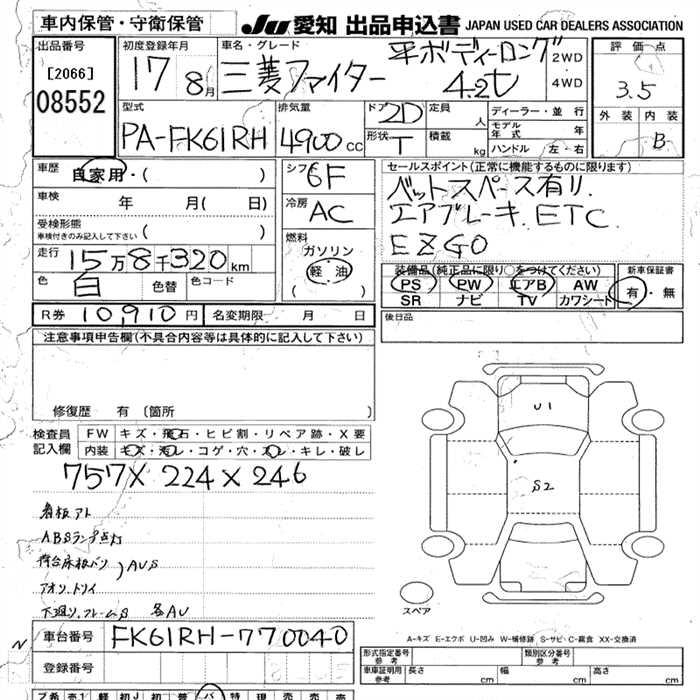 車内保管・守衛保管
JU 愛知 出品申込書 JAPAN USED CAR DEALERS ASSOCIATION
出品番号
[2066]
08552
初度登録年月
17 8月
車名・グレード
三菱ファイター
平ボディーロング
4.2t
2WD
・
4WD
評価点
3.5
外装 内装
B
型式
PA-FK61RH
排気量
4900 cc
ドア 2D
形状 T
定員 人
積載 kg
ディーラー・並行
モデル年式 年
ハンドル 左・右
車歴
自家用・( )
車検 年 月( 日)
受検形態
車検付きのみ記入して下さい ( )
走行 15万8千320km
色 白 色替 色コード
シフト 6F
冷房 AC
燃料
ガソリン
軽油
( )
セールスポイント(正常に機能するものに限ります)
ベットスペース有リ.
エアブレーキ. ETC
EZGO
装備品(純正品に限り○をつけてください)
PS PW エアB AW
SR ナビ TV カワシート
新車保証書
有・無
R券 10,910円 名変期限 月 日
後日品
注意事項申告欄(不具合内容等は具体的に記入して下さい)
修復歴 有 〔箇所 〕
検査員記入欄
FW キズ・飛石・ヒビ割・リペア跡・X要
内装 キズ・汚レ・コゲ・穴・スレ・キレ・破レ
757X 224 X 246
看板アト
ABSランプ点灯
荷台床板バリ
アオリ.トリイ
)AUS
下廻リ.フレームS 各AU
U1
S2
スペア
A-キズ E-エクボ U-凹み W-補修跡 S-サビ・C-腐食 XX-交換済
車台番号 FK61RH-770040
登録番号
形式指定番号 参考
類別区分番号 参考
車車証明用 参考
長さ cm 幅 cm 高さ cm
N